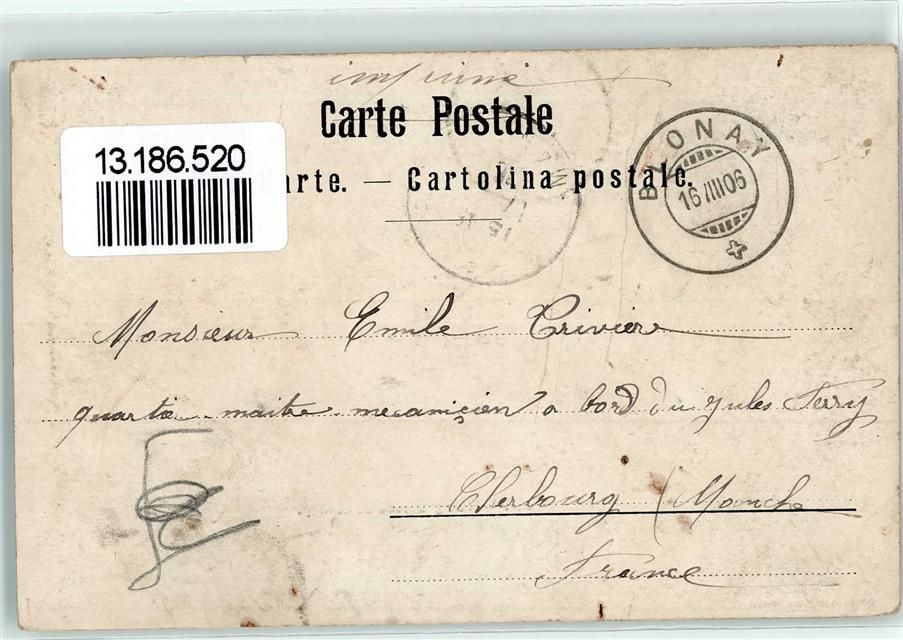 imprimé
Carte Postale
13.186.520
arte. — Cartolina postale.
BLONAY
16 III 06
Monsieur Emile Crivier
quartie maitre mecanicien a bord du Jules Ferry
Cherbourg (Manche
France